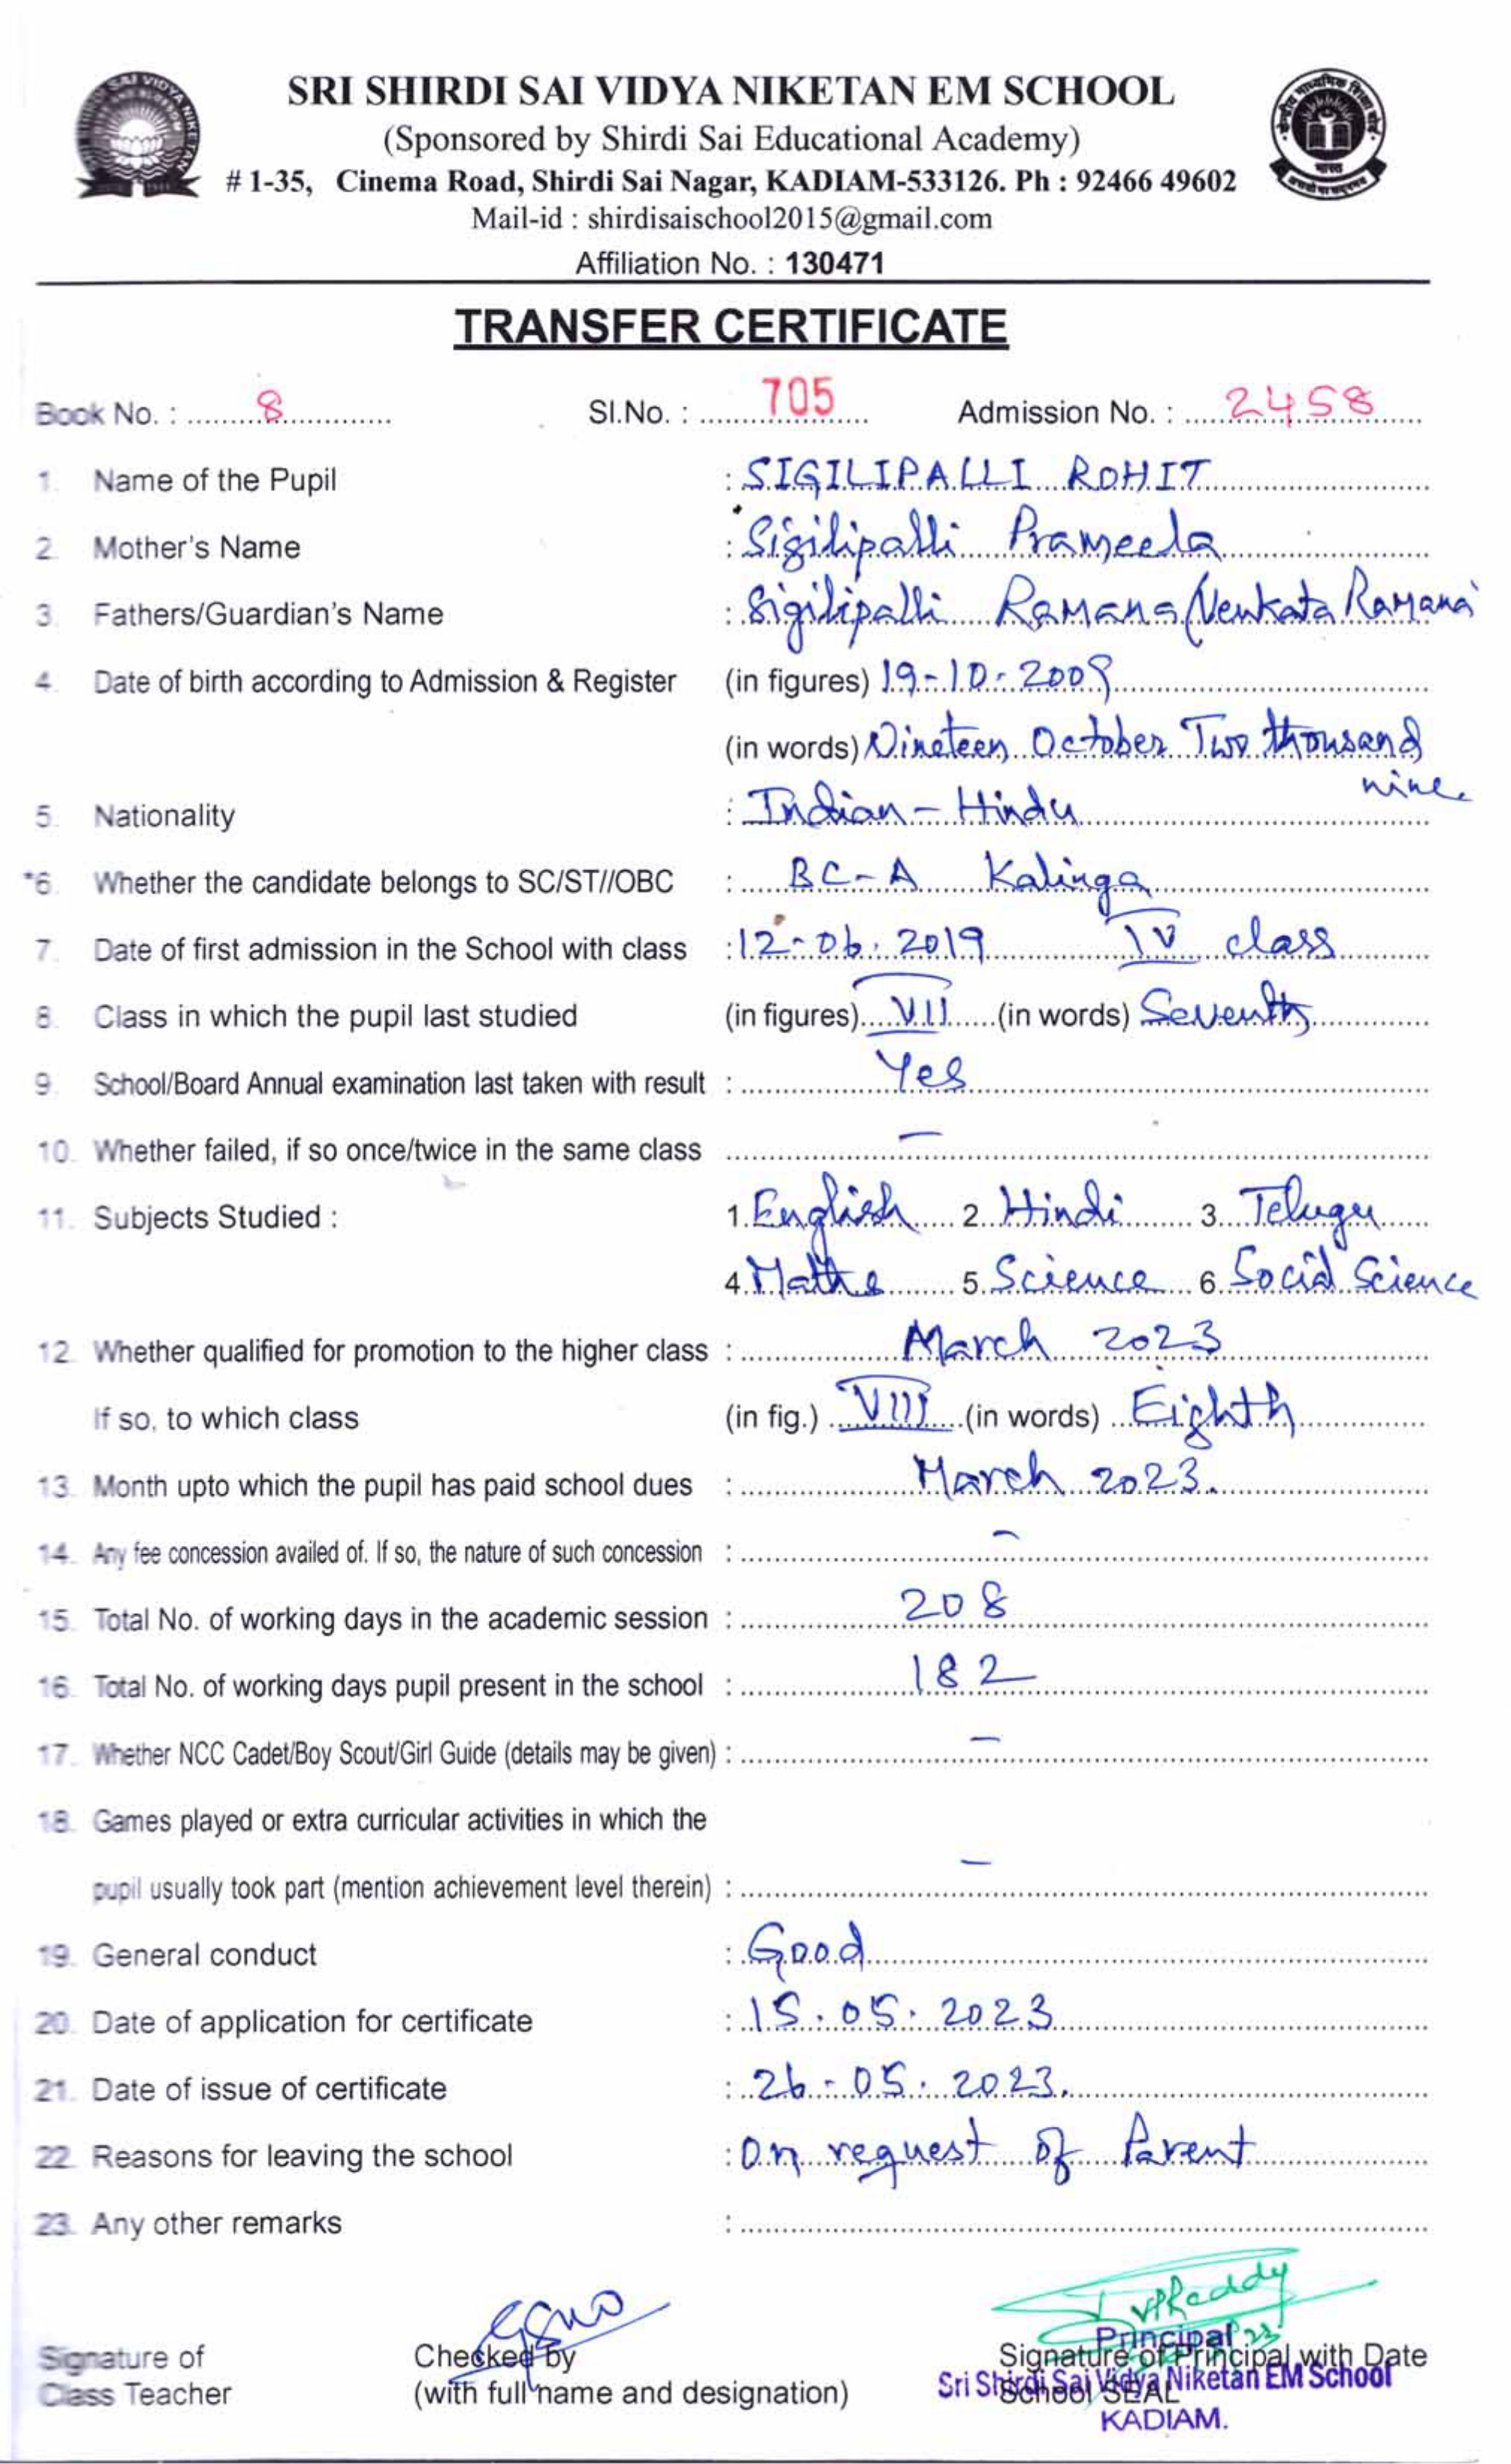 SRI SHIRDI SAI VIDYA NIKETAN EM SCHOOL
(Sponsored by Shirdi Sai Educational Academy)
# 1-35, Cinema Road, Shirdi Sai Nagar, KADIAM-533126. Ph : 92466 49602
Mail-id : shirdisaischool2015@gmail.com
Affiliation No. : 130471
TRANSFER CERTIFICATE
Book No. : 8 Sl.No. : 705 Admission No. : 2458
1. Name of the Pupil : SIGILIPALLI ROHIT
2. Mother's Name : Sigilipalli Prameela
3. Fathers/Guardian's Name : Sigilipalli Ramana (Venkata Ramana)
4. Date of birth according to Admission & Register (in figures) 19-10-2009
(in words) Nineteen October Two thousand
nine
5. Nationality : Indian - Hindu
*6. Whether the candidate belongs to SC/ST//OBC : BC-A Kalinga
7. Date of first admission in the School with class : 12-06.2019 IV class
8. Class in which the pupil last studied (in figures) VII (in words) Seventh
9. School/Board Annual examination last taken with result : Yes
10. Whether failed, if so once/twice in the same class —
11. Subjects Studied : 1. English 2. Hindi 3. Telugu
4. Maths 5. Science 6. Social Science
12. Whether qualified for promotion to the higher class : March 2023
If so, to which class (in fig.) VIII (in words) Eighth
13. Month upto which the pupil has paid school dues : March 2023.
14. Any fee concession availed of. If so, the nature of such concession : -
15. Total No. of working days in the academic session : 208
16. Total No. of working days pupil present in the school : 182
17. Whether NCC Cadet/Boy Scout/Girl Guide (details may be given) : -
18. Games played or extra curricular activities in which the
pupil usually took part (mention achievement level therein) : -
19. General conduct : Good
20. Date of application for certificate : 15.05.2023
21. Date of issue of certificate : 26-05.2023.
22. Reasons for leaving the school : On request of Parent
23. Any other remarks :
Signature of Checked by Signature of Principal with Date
Class Teacher (with full name and designation) School SEAL
Principal
Sri Shirdi Sai Vidya Niketan EM School
KADIAM.